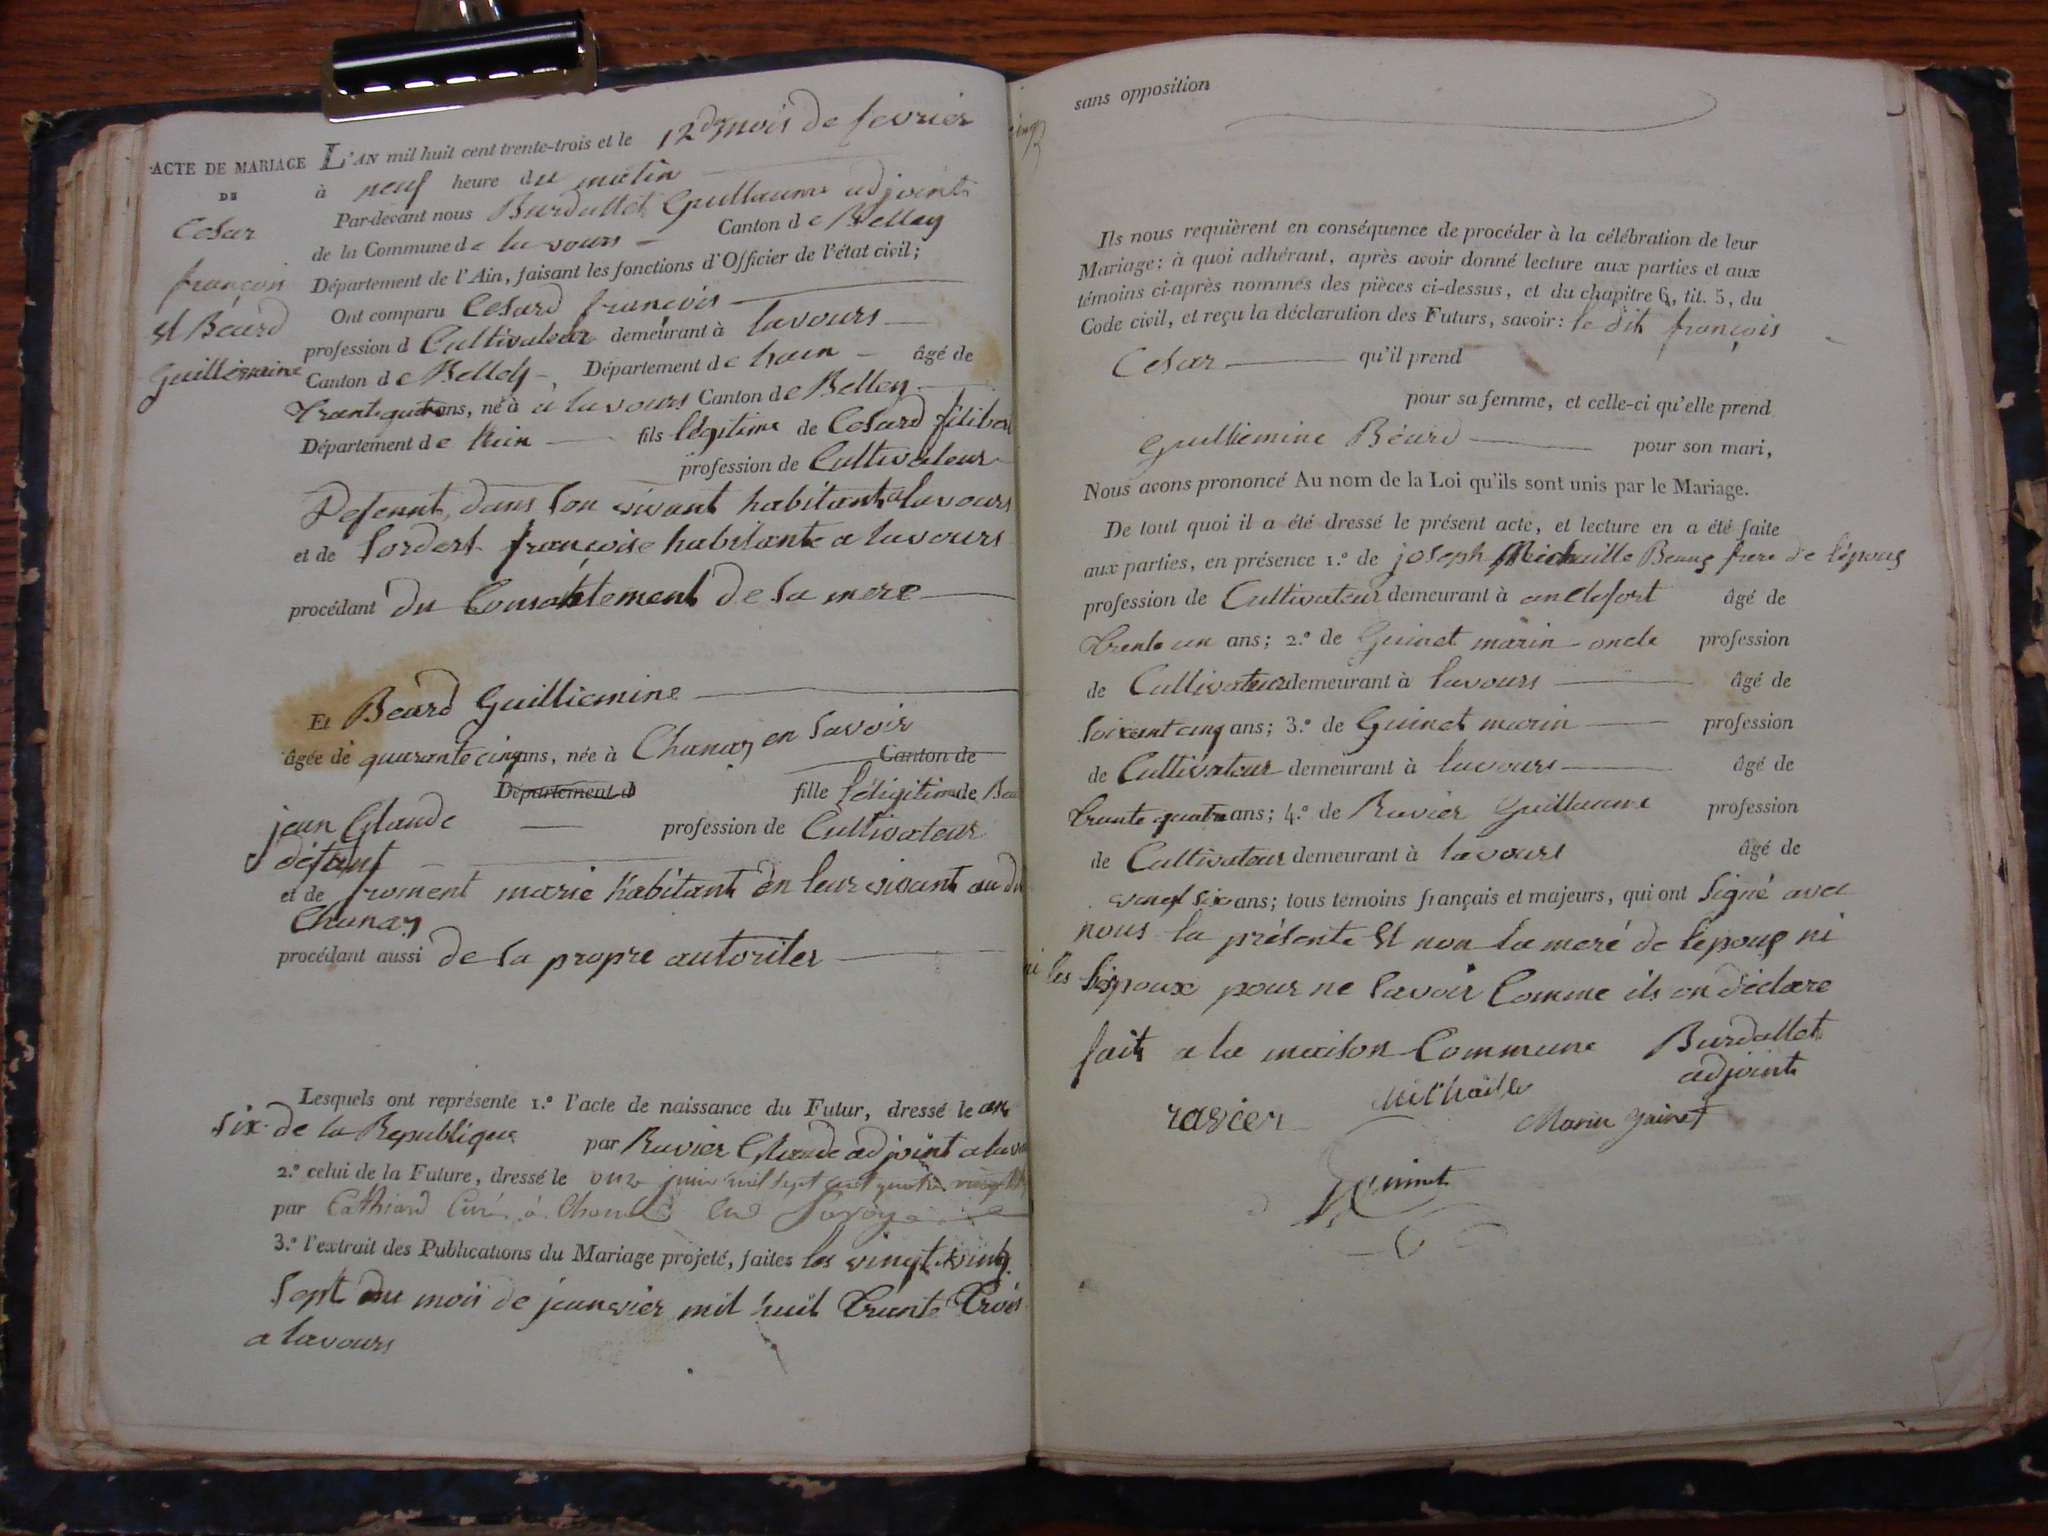 ACTE DE MARIAGE
DE
Cesar
françois
et Béard
Guilliermine
L'AN mil huit cent trente-trois et le 12 du mois de fevrier
à neuf heure du matin
Par-devant nous Burdallet Guillaume adjoint
de la Commune de lavours Canton de Belley
Département de l'Ain, faisant les fonctions d'Officier de l'état civil;
Ont comparu Cesard françois
profession d Cultivateur demeurant à lavours
Canton de Belley Département de hain âgé de
trant quatre ans, né à a lavours Canton de Belley
Département de hin fils légitime de Cesard filibert
profession de Cultivateur
Defunt, dans son vivant habitant a lavours
et de françoise habitante a lavours
procédant du Consantement de sa mere
Et Beard Guilliemine
âgée de quarante cinq ans, née à Chanaz en Savoir Canton de
Département d fille légitime de Bea
jean Glaude profession de Cultivateur
défunt
et de froment marie habitant en leur vivant au dit
Chanaz
procédant aussi de sa propre autorites
Lesquels ont représente 1.º l'acte de naissance du Futur, dressé le an
six de la Republique par Ravier Glaude adjoint a lavo
2.º celui de la Future, dressé le onze juin mil sept cent quatre vingt
par Cathiard Curé à en Savoye
3.º l'extrait des Publications du Mariage projeté, faites les vingt et vingt
Sept du mois de jeanvier mil huit trante trois
a lavours
sans opposition
Ils nous requièrent en conséquence de procéder à la célébration de leur
Mariage: à quoi adhérant, après avoir donné lecture aux parties et aux
témoins ci-après nommés des pièces ci-dessus, et du chapitre 6, tit. 5, du
Code civil, et reçu la déclaration des Futurs, savoir: le dit françois
Cesar qu'il prend
pour sa femme, et celle-ci qu'elle prend
Guilliemine Béard pour son mari,
Nous avons prononcé Au nom de la Loi qu'ils sont unis par le Mariage.
De tout quoi il a été dressé le présent acte, et lecture en a été faite
aux parties, en présence 1.º de joseph Michaille Beaux frere de l'époux
profession de Cultivateur demeurant à anglefort âgé de
trente un ans; 2.º de Guinet marin oncle profession
de Cultivateur demeurant à lavours âgé de
soixant cinq ans; 3.º de Guinet marin profession
de Cultivateur demeurant à lavours âgé de
trante quatre ans; 4.º de Ravier Guillaume profession
de Cultivateur demeurant à lavours âgé de
vingt six ans; tous témoins français et majeurs, qui ont Signé avec
nous la présente Et non la meré de l'epoux ni
ni les Epoux pour ne Savoir Comme ils on déclare
fait a la maison Commune Burdallet
adjoint
ravier Michaille Marin guinet
Guinet